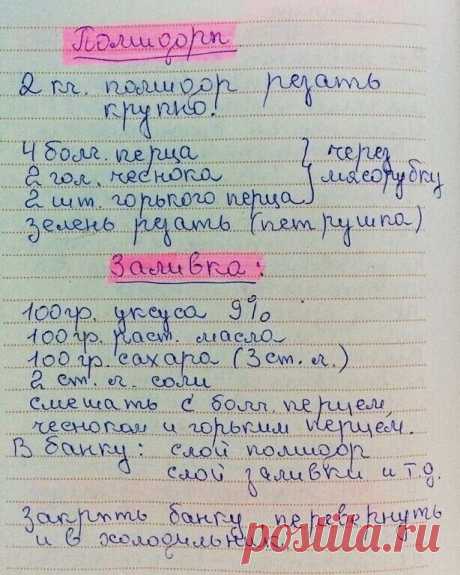 Помидоры
2 кг. помидор резать
крупно.
4 болг. перца
2 гол. чеснока
2 шт. горького перца
} через
мясорубку
зелень резать (петрушка)
Заливка:
100 гр. уксуса 9%
100 гр. раст. масла
100 гр. сахара (3 ст. л.)
2 ст. л. соли
смешать с болг. перцем,
чесноком и горьким перцем.
В банку: слой помидор
слой заливки и т.д.
Закрыть банку, перевернуть
и в холодильник.
postila.ru